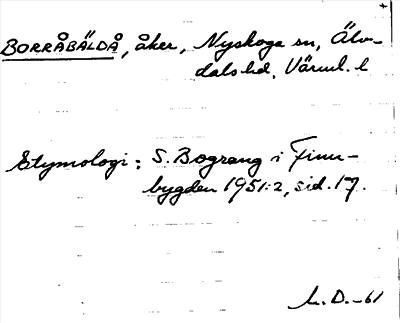 BORRÅBÄLDÅ, åker, Nyskoga sn, Älv-
dals hd, Värml. l
Etymologi: S. Bograng i Finn-
bygden 1951:2, sid. 17.
L. D. -61